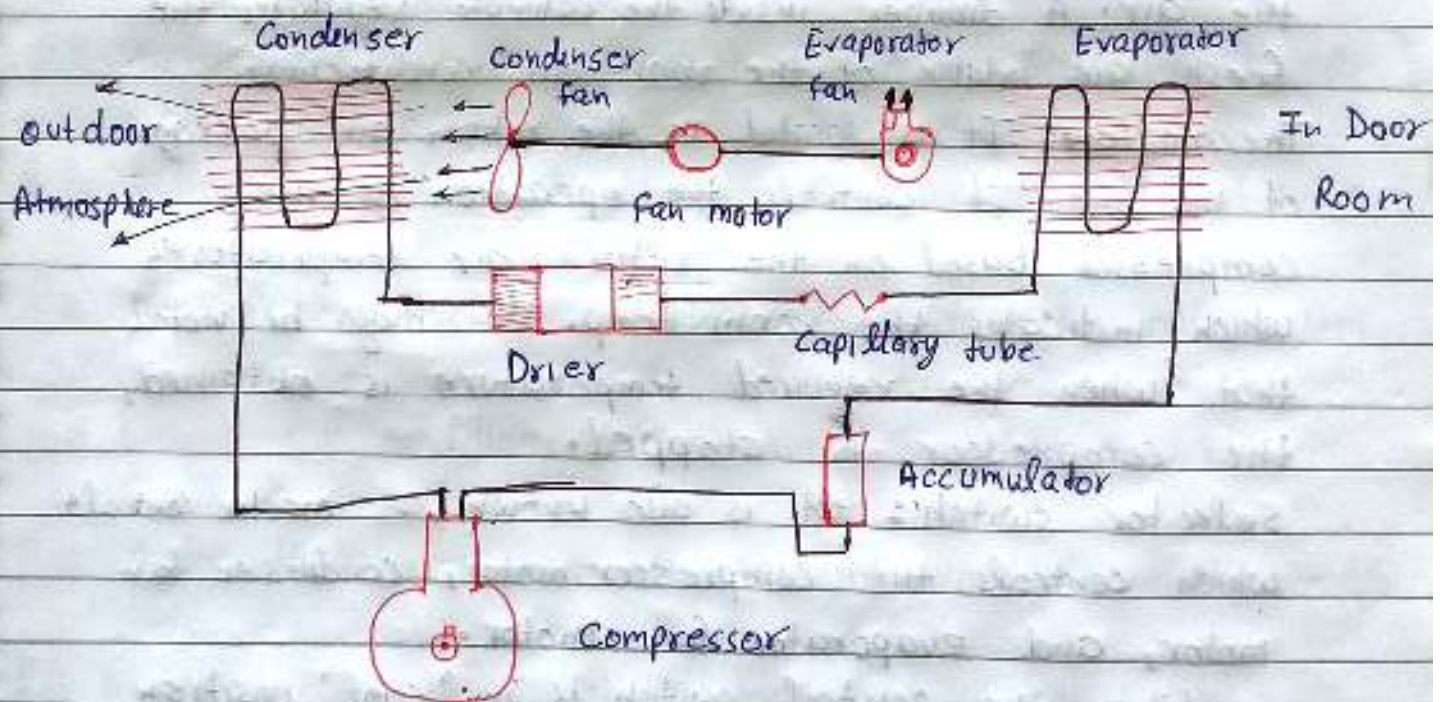 Condenser
Condenser
fan
Evaporator
fan
Evaporator
outdoor
Atmosphere
In Door
Room
fan motor
Drier
Capillary tube
Accumulator
Compressor